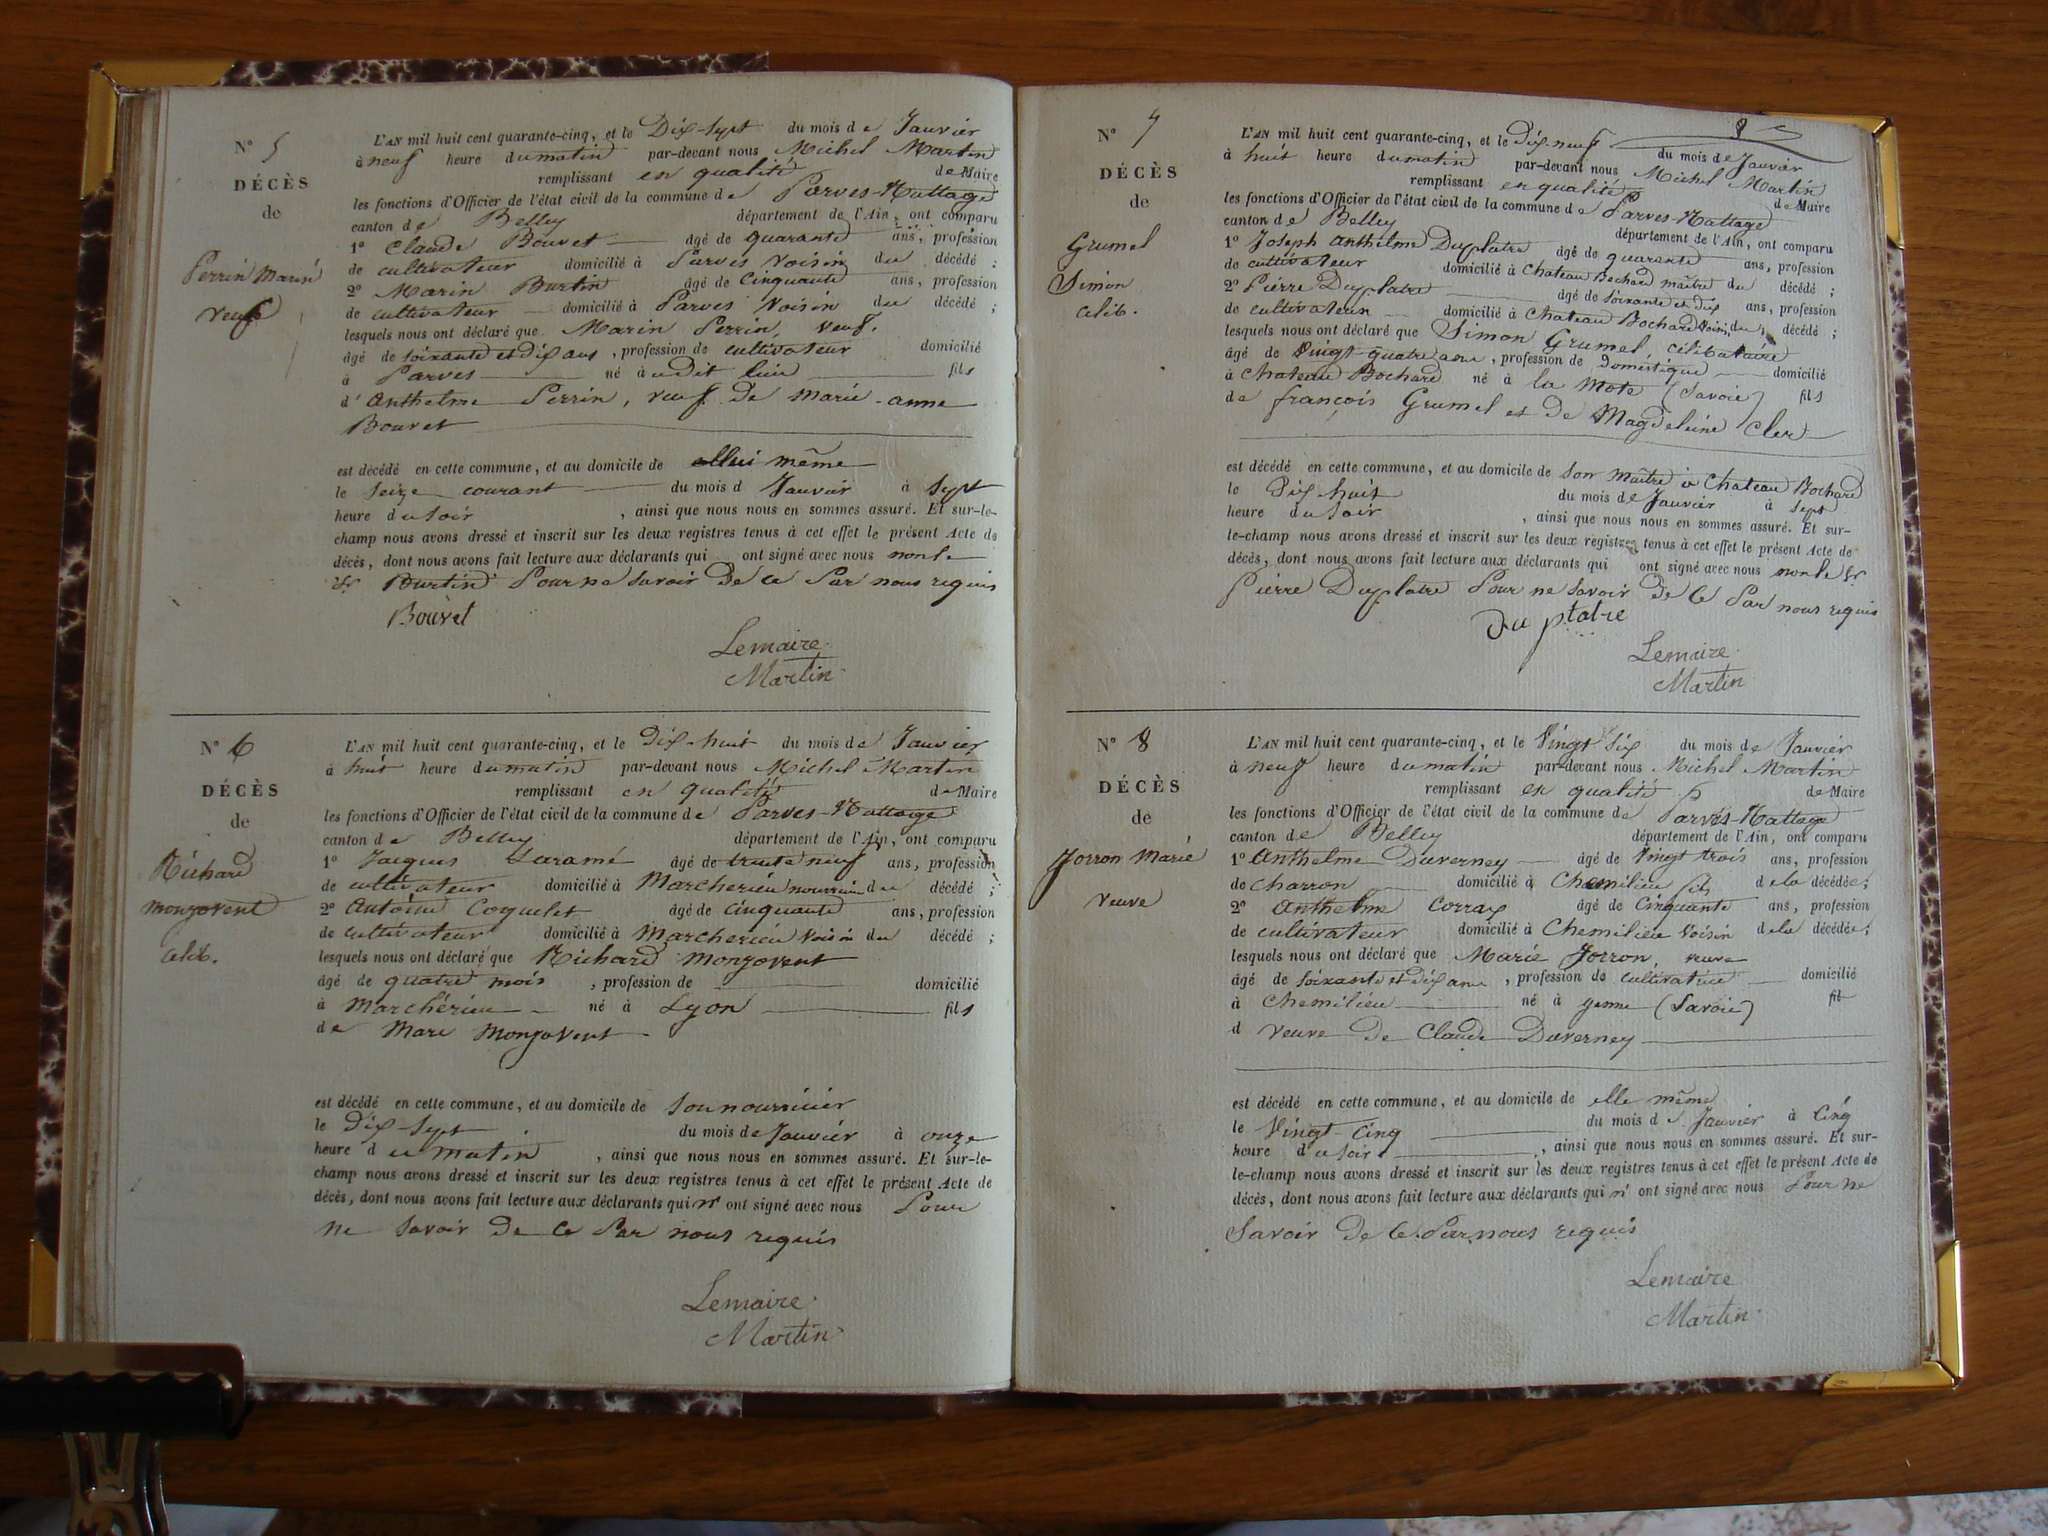 N° 5
DÉCÈS
de
Perrin Marin
veuf
L'AN mil huit cent quarante-cinq, et le Dix-Sept du mois de Janvier
à neuf heure du matin par-devant nous Michel Martin
remplissant en qualité de Maire
les fonctions d'Officier de l'état civil de la commune de Parves-Nattage
canton de Belley département de l'Ain, ont comparu
1° Claude Bouvet âgé de quarante ans, profession
de cultivateur domicilié à Parves Voisin du décédé ;
2° Marin Burtin âgé de Cinquante ans, profession
de cultivateur domicilié à Parves Voisin du décédé ;
lesquels nous ont déclaré que Marin Perrin, veuf.
âgé de soixante et dix ans, profession de cultivateur domicilié
à Parves né à u dit lieu fils
d' Anthelme Perrin, veuf de marie-anne
Bouvet
est décédé en cette commune, et au domicile de même
le seize courant du mois d Janvier à Sept
heure du soir, ainsi que nous nous en sommes assuré. Et sur-le-
champ nous avons dressé et inscrit sur les deux registres tenus à cet effet le présent Acte de
décès, dont nous avons fait lecture aux déclarants qui ont signé avec nous non le
Sr Burtin Pour ne savoir De ce Par nous requis
Bouvet
Lemaire
Martin
N° 6
DÉCÈS
de
Richard
monzovent
célib.
L'AN mil huit cent quarante-cinq, et le Dix-huit du mois de Janvier
à huit heure du matin par-devant nous Michel Martin
remplissant en qualité de Maire
les fonctions d'Officier de l'état civil de la commune de Parves-Nattage
canton de Belley département de l'Ain, ont comparu
1° Jacques Laramé âgé de trente neuf ans, profession
de cultivateur domicilié à Marcherieu nourricier du décédé ;
2° Antoine Coquelet âgé de cinquante ans, profession
de cultivateur domicilié à Marcherieu Voisin du décédé ;
lesquels nous ont déclaré que Richard monzovent
âgé de quatre mois, profession de domicilié
à Marchérieu né à Lyon fils
de Marc monzovent
est décédé en cette commune, et au domicile de son nourricier
le Dix-Sept du mois de Janvier à onze
heure d u matin, ainsi que nous nous en sommes assuré. Et sur-le-
champ nous avons dressé et inscrit sur les deux registres tenus à cet effet le présent Acte de
décès, dont nous avons fait lecture aux déclarants qui n' ont signé avec nous Pour
ne savoir De ce Par nous requis
Lemaire
Martin
8
N° 7
DÉCÈS
de
Grumel
Simon
célib.
L'AN mil huit cent quarante-cinq, et le Dix neuf du mois de Janvier
à huit heure du matin par-devant nous Michel Martin
remplissant en qualité de Maire
les fonctions d'Officier de l'état civil de la commune de Parves-Nattage
canton de Belley département de l'Ain, ont comparu
1° Joseph Anthelme Duplatre âgé de quarante ans, profession
de cultivateur domicilié à Chateau Bochard maître du décédé ;
2° Pierre Duplatre âgé de soixante et dix ans, profession
de cultivateur domicilié à Chateau Bochard Voisin du décédé ;
lesquels nous ont déclaré que Simon Grumel, célibataire
âgé de Vingt-quatre ans, profession de Domestique domicilié
à Chateau Bochard né à la Mote (Savoie) fils
de françois Grumel et de Magdeleine Cler
est décédé en cette commune, et au domicile de son maître à Chateau Bochard
le Dix huit du mois de Janvier à sept
heure du soir, ainsi que nous nous en sommes assuré. Et sur-
le-champ nous avons dressé et inscrit sur les deux registres tenus à cet effet le présent Acte de
décès, dont nous avons fait lecture aux déclarants qui ont signé avec nous non le Sr
Pierre Duplatre Pour ne savoir De ce Par nous requis
du platre
Lemaire
Martin
N° 8
DÉCÈS
de
Jorron Marie
veuve
L'AN mil huit cent quarante-cinq, et le Vingt Six du mois de Janvier
à neuf heure du matin par-devant nous Michel Martin
remplissant en qualité de Maire
les fonctions d'Officier de l'état civil de la commune de Parves-Nattage
canton de Belley département de l'Ain, ont comparu
1° Anthelme Duverney âgé de Vingt trois ans, profession
de charron domicilié à Chemilieu fils dela décédée ;
2° Anthelme Corrax âgé de Cinquante ans, profession
de cultivateur domicilié à Chemilieu Voisin dela décédée ;
lesquels nous ont déclaré que Marie Jorron, veuve
âgé de soixante et dix ans, profession de cultivatrice domicilié
à Chemilieu né à yenne (Savoie) fil
d veuve de Claude Duverney
est décédé en cette commune, et au domicile de elle même
le Vingt-Cinq du mois de Janvier à Cinq
heure du soir, ainsi que nous nous en sommes assuré. Et sur-
le-champ nous avons dressé et inscrit sur les deux registres tenus à cet effet le présent Acte de
décès, dont nous avons fait lecture aux déclarants qui n' ont signé avec nous Pour ne
Savoir De ce Par nous requis
Lemaire
Martin